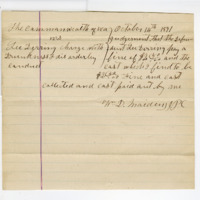 The Commonwealth of Va October 14th 1891
vs Judgement that the Defen
Lee Dearing Charge with dant Lee Dearing pay a
Drunkness & disorderly fine of $2.00 and the
conduct cost which fond to be
Fine and cost
collected and cost paid out by me
W. D. J.P.